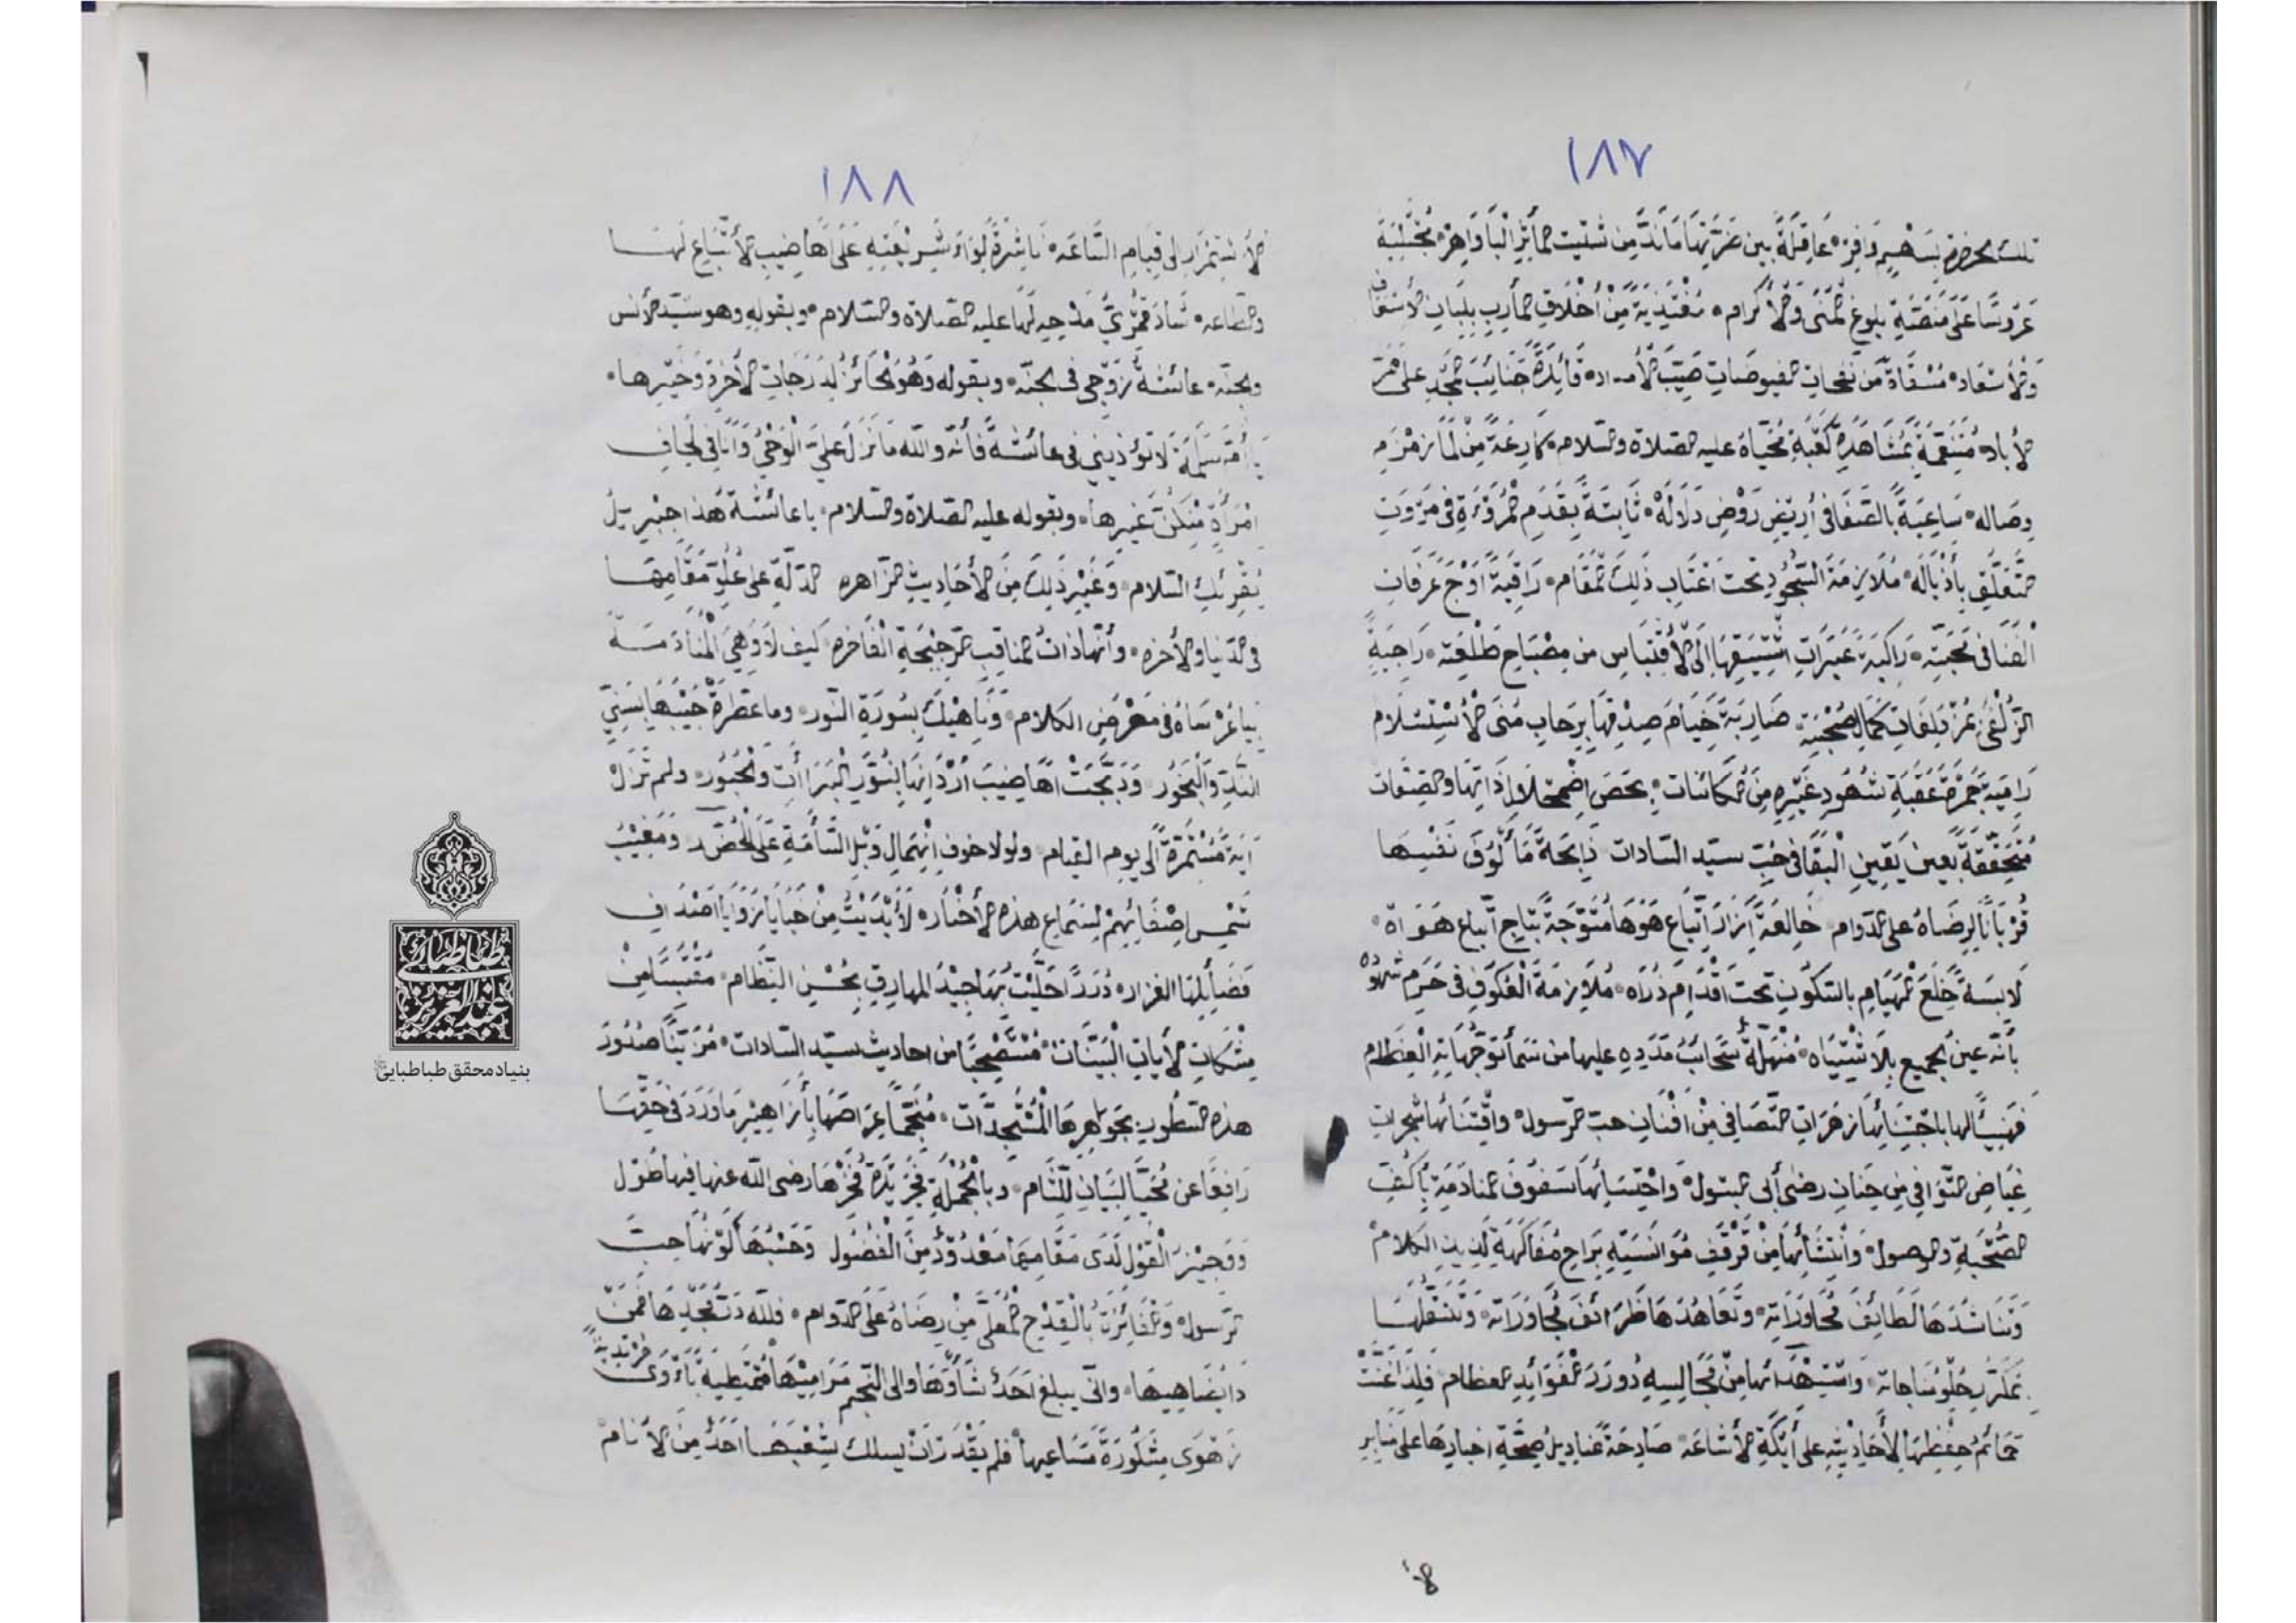 ١٨٧
تلك الحضرة بسهم وافر عاقلة بين ضرتها ماند من شتيت المآثر البواهر مجتلية
عروسا على منصة بلوغ المنى والأكرام من أخلاف المآرب بلبان الأسعاف
والأسعاد مسقاة من نفحات الفيوضات صيب الأمداد قائدة جنائب المجد على ممر
الأباد متنعمة بمشاهدة كعبة محياه عليه الصلاة والسلام كارعة من لما زمزم
وصاله ساعية بالصفا في أريض روض دلاله ثابتة بقدم المروءة في مروت
التعلق بأذياله ملازمة السجود تحت اعتاب ذلك المقام راقية أوج عرفات
الفنا في محبته راكبة الى الأقتباس من مصباح طلعته راجية
الزلفى كمال صحبته ضاربة خيام صدقها برحاب منى الأستسلام
رامية جمرة عقبة شهود غيره من الكائنات بحصى اضمحلال ذاتها والصفات
متحققة بعين يقين البقا في حب سيد السادات ذابحة مألوف نفسها
قربانا لرضاه على الدوام خالعة ازار اتباع هوها متوجة بتاج اتباع هواه
لابسة خلع الهيام بالسكون تحت اقدام ملازمة العكوف في حرم شهوده
بأنه عين الجميع بلا اشتباه منهلة سحائب مدده عليها من سما توجهاته العظام
فهنيئا لها باجتنائها زهرات التصافي من افنان حب الرسول واقتنائها شجرات
غياض التوافي من جنان رضى أبي البتول واحتسائها المنادمة بأكف
الصحبة والوصول وانتشائها من قرقف مؤانسته براح مفاكهة لذيذ الكلام
وتناشدها لطائف محاوراته وتعاهدها ظرائف مجاوراته وتنقلها
بحلو مناجاته من مجالسه درر الفوائد العظام فلذا غنت
حمائم حفظها لأحاديثه على أيكة الأشاعه صادحة عناديل صحة اخبارها على منابر
١٨٨
الأستمرار الى قيام الساعه ناشرة لواء شريعته على اهاضيب الأتباع لها
والطاعه مدحه لها عليه الصلاة والسلام وبقوله وهو سيد الأنس
والجنه عائشة زوجي في الجنه وبقوله وهو الحائز لدرجات الأخرة وخيرها
يا أم سلمة لا تؤذيني في عائشة فأنه والله ما نزل علي الوحي وأنا في لحاف
امرأة منكن غيرها وبقوله عليه الصلاة والسلام يا عائشة هذا جبريل
يقرئك السلام وغير ذلك من الأحاديث الزاهره الدالة على علو مقامها
في الدنيا والأخره وأنها ذات المناقب الفاخره كيف لا وهي المنادمة
في معرض الكلام وناهيك بسورة النور وما عطرة جيبها بسني
الند والبخور ودبجت اهاضيب اردانها بنور البراأت والحبور ولم تزل
آية مستمرة الى يوم القيام ولولا خوف انهمال وبل السآمة على ومغيب
شمس اصغائهم لسماع هذه الأخبار لأبديت من خبايا زوايا اصداف
فضائلها الغزار دررا حليت بها جيد المهارق بحسن النظام مقتبسا من
مشكات الأيات البينات من احاديث سيد السادات مزينا صدور
هذه السطور بجواهرها بأزاهير ما ورد في حقها
رافعا عن محيا البيان اللثام وبالجملة رضى الله عنها فيها طول
ووجيز القول لدى مقاميهما معدود من الفضول وحسبها كونها حب
الرسول والفائزة بالقدح المعلى من رضاه على الدوام فلله در مجدها فمن
ذا يضاهيها وانى يبلغ احد شأوها والى النجم مراميها
مشكورة مساعيها فلم يقدر ان يسلك شعبها احد من الأنام
بنياد محقق طباطبائي